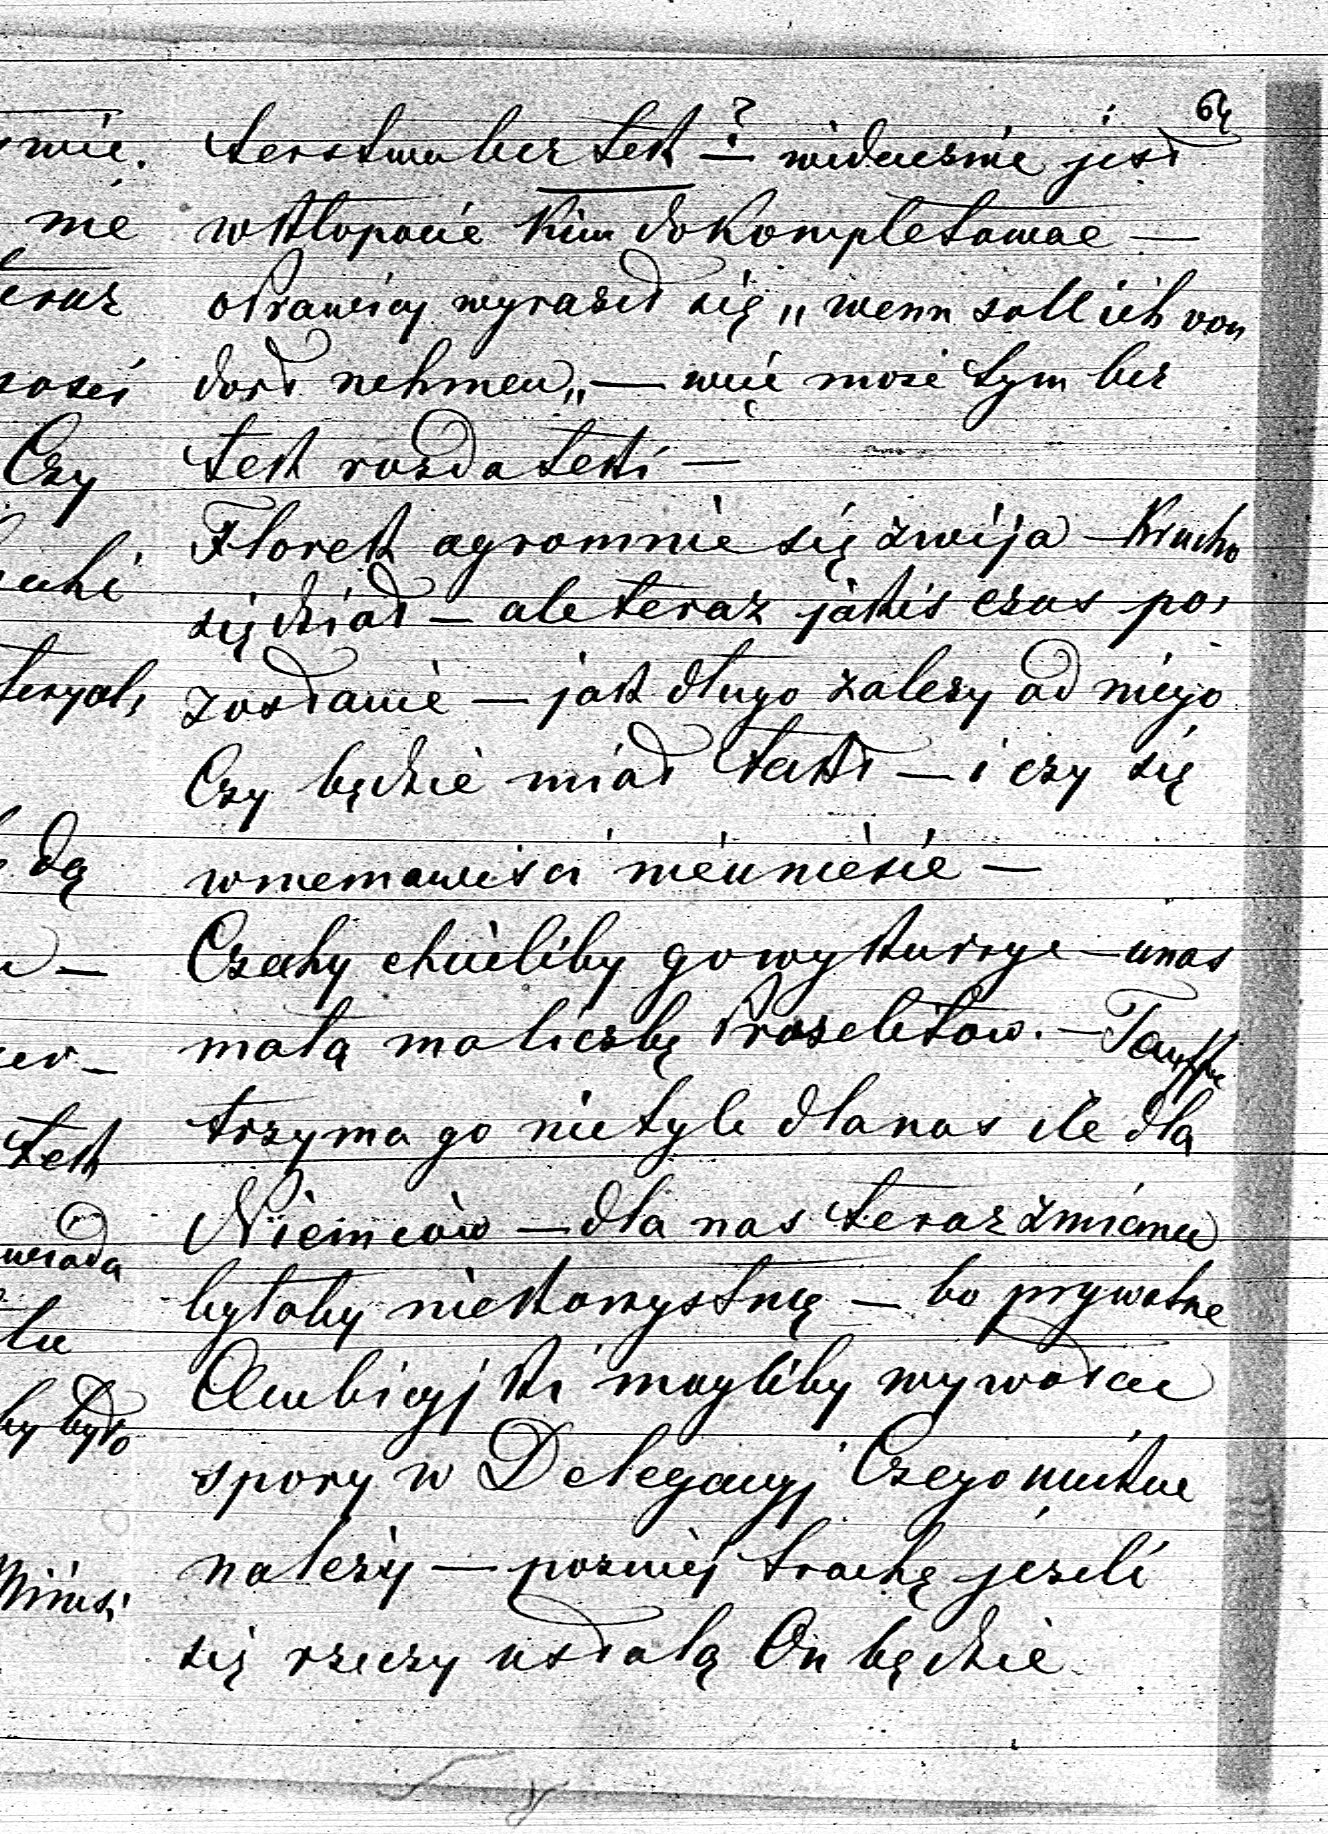 64
terstwa bez tek — ? widocznie jest
w kłopocie kim dokompletować —
obrawiej wyraził się „wenn soll ich von
dort nehmen„ — więc może tym bez
tek rozda teki —
Florek ogromnie się zwija — Krucho
się dział — ale teraz jakiś czas po,
zostanie — jak długo zależy od niego
Czy będzie miał takt — i czy się
w niemawiści nieuniesie —
Czechy chcieliby go wykurzyć — unas
małą ma liczbę Prozelitow. — Taaffe
trzyma go nie tyle dla nas ile dla
Niemców — dla nas teraz zmiana
byłaby niekorzystną — bo prywatne
Ambicyjki mogliby wywołać
spory w Delegacyj Czego unikać
należy — pozniej trochę jeżeli
się rzeczy ustalą On będzie